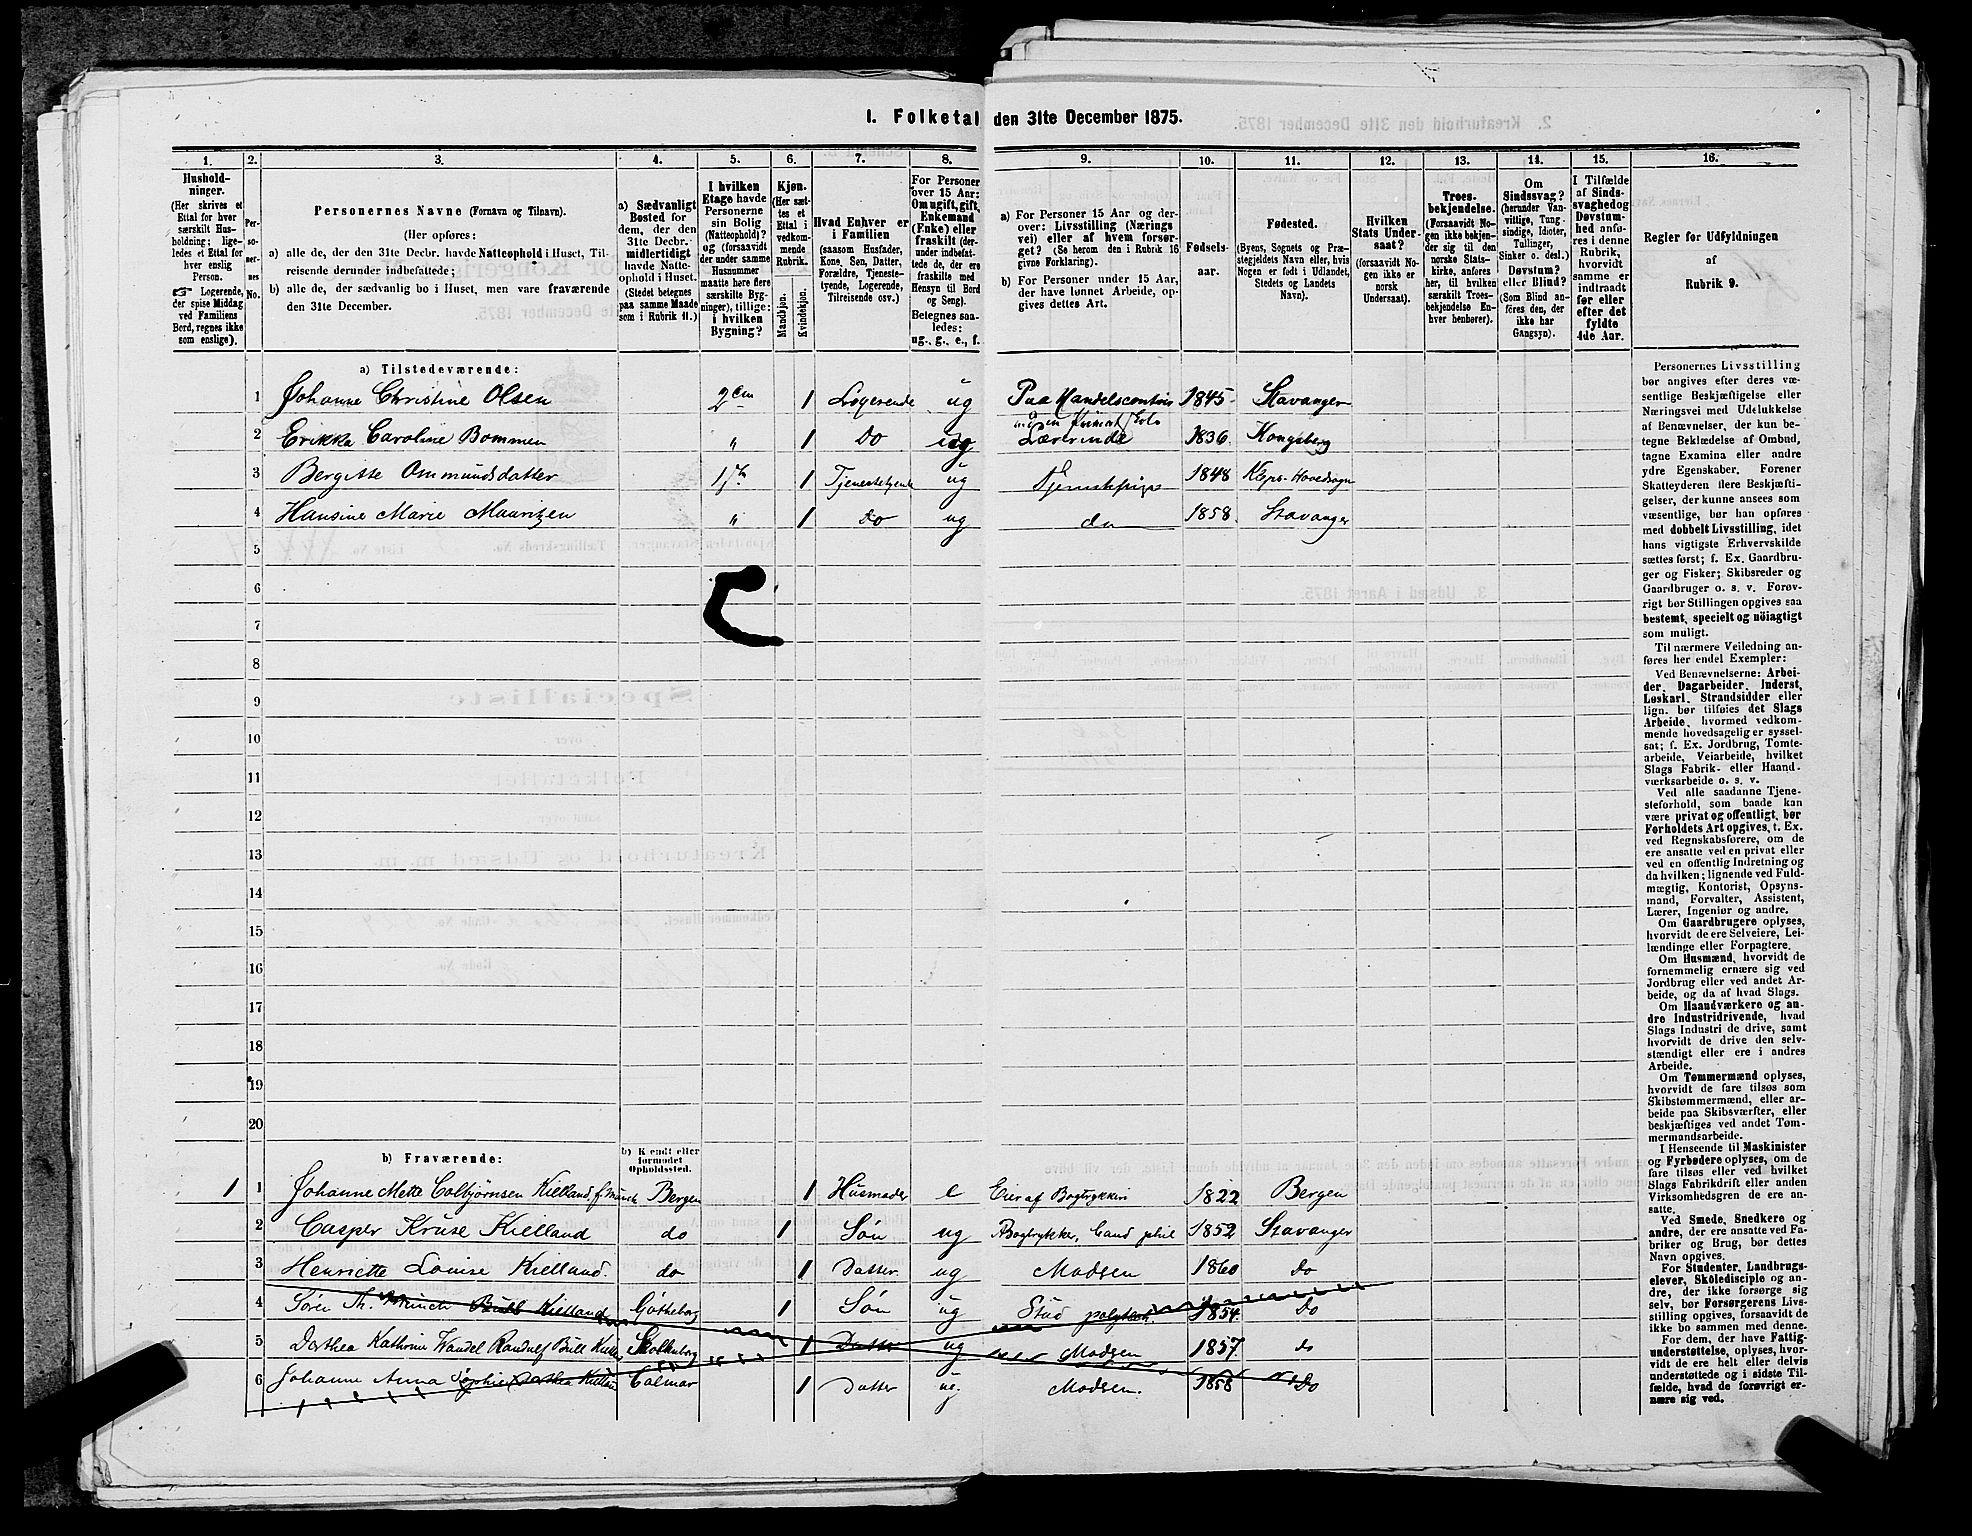 1. Folketal den 31te December 1875.
1. 2. 3. 4. 5. 6. 7. 8. 9. 10. 11. 12. 13. 14. 15. 16.
Hushold-
ninger.
(Her skrives et
Ettal for hver
særskilt Hus-
holdning; lige-
ledes et Ettal for
hver enslig
Person.
☞ Logerende,
der spise Middag
ved Familiens
Bord, regnes ikke
som enslige).
Per-
so-
ner-
nes
No.
Personernes Navne (Fornavn og Tilnavn).
(Her opføres:
a) alle de, der den 31te Decbr. havde Natteophold i Huset, Til-
reisende derunder indbefattede;
b) alle de, der sædvanlig bo i Huset, men vare fraværende
den 31te December.
a) Sædvanligt
Bosted for
dem, der den
31te Decbr.
midlertidigt
havde Natte-
ophold i Huset.
(Stedet betegnes
paa samme Maade
som i Rubrik 11.)
I hvilken
Etage havde
Personerne
sin Bolig
(Natteophold)?
og (forsaavidt
der under samme
Husnummer
maatte høre flere
særskilte Byg-
ninger), tillige:
i hvilken
Bygning?
Kjøn.
(Her sæt-
tes et
Ettal i
vedkom-
mende
Rubrik.
Mandkjøn.
Kvindekjøn.
Hvad Enhver er
i Familien
(saasom Husfader,
Kone, Søn, Datter,
Forældre, Tjeneste-
tyende, Logerende,
Tilreisende osv.)
For Personer
over 15 Aar:
Om ugift, gift,
Enkemand
(Enke) eller
fraskilt (der-
under indbefat-
tede de, der ere
fraskilte med
Hensyn til Bord
og Seng).
Betegnes saa-
ledes:
ug., g., e., f.
a) For Personer 15 Aar og der-
over: Livsstilling (Nærings
vei) eller af hvem forsør-
get? (Se herom den i Rubrik 16
givne Forklaring).
b) For Personer under 15 Aar,
der have lønnet Arbeide, op-
gives dettes Art.
Fødsels-
aar.
Fødested.
(Byens, Sognets og Præ-
stegjeldets Navn eller, hvis
Nogen er født i Udlandet,
Stedets og Landets
Navn).
Hvilken
Stats Under-
saat?
(forsaavidt No-
gen ikke er
norsk
Undersaat).
Troes-
bekjendelse.
(Forsaavidt No-
gen ikke bekjen-
der sig til den
norske Stats-
kirke, anføres
her, til hvilken
særskilt Troes-
bekjendelse En-
hver henhører).
Om
Sindssvag?
(herunder Van-
vittige, Tung-
sindige, Idioter,
Tullinger,
Sinker o. desl.)
Døvstum?
eller Blind?
(Som Blind an-
føres den, der
ikke har
Gangsyn).
I Tilfælde
af Sinds-
svaghed og
Døvstum-
hed anfø-
res i denne
Rubrik,
hvorvidt
samme er
indtraadt
før eller
efter det
fyldte
4de Aar.
Regler for Udfyldningen
af
Rubrik 9.
a) Tilstedeværende:
1 Johanne Christine Olsen 2den 1 Logerende ug Paa Handelscontoir 1845 Stavanger
2 Erikka Caroline Bommen " 1 Do ug Lærerinde 1836 Kongsberg
3 Bergitte Ommundsdatter 1ste 1 Tjenestetyende ug Tjenestepige 1848 Kleps Hovedsogn
4 Hansine Marie Mauritzen " 1 Do ug do 1858 Stavanger
5
6
7
8
9
10
11
12
13
14
15
16
17
18
19
20
b) Fraværende:
b) Kendt eller
formodet
Opholdssted.
1 1 Johanne Mette Colbjørnsen Kielland, f. Munch Bergen 1 Husmoder e Eier af Bogtrykkeri 1822 Bergen
2 Casper Kruse Kielland do 1 Søn ug Bogtrykker, Cand phil 1852 Stavanger
3 Henriette Louise Kielland. do 1 Datter ug Modsen 1860 do
4 Sören Th. Munch Bull Kielland Götheborg 1 Søn ug Stud polytech 1854 do
5 Dorthea Kathrine Wandel Randulf Bull 1 Datter ug Modsen 1857 do
6 Johanne Anna Sophie Dorthea Kielland Calmar 1 Datter ug. Modsen. 1858 Do
Personernes Livsstilling
bør angives efter deres væ-
sentlige Beskjæftigelse eller
Næringsvei med Udelukkelse
af Benævnelser, der kun be-
tegne Beklædelse af Ombud,
tagne Examina eller andre
ydre Egenskaber. Forener
Skatteyderen flere Beskjæfti-
gelser, der kunne ansees som
væsentlige, bør han opføres
med dobbelt Livsstilling, idet
hans vigtigste Erhvervskilde
sættes først; f. Ex. Gaardbru-
ger og Fisker; Skibsreder og
Gaardbruger o. s. v. Forøv-
rigt bør Stillingen opgives saa
bestemt, specielt og nöiagtigt
som muligt.
Til nærmere Veiledning an-
føres her endel Exempler:
Ved Benævnelserne: Arbei-
der, Dagarbeider, Inderst,
Løskarl, Strandsidder eller
lign. bør tilføies det Slags
Arbeide, hvormed vedkom-
mende hovedsagelig er syssel-
sat; f. Ex. Jordbrug, Tomte-
arbeide, Veiarbeide, hvilket
Slags Fabrik- eller Haand-
værksarbeide o. s. v.
Ved alle saadanne Tjene-
steforhold, som baade kan
være privat og offentligt, bør
Forholdets Art opgives, t. Ex.
ved Regnskabsførere, om de
ere ansatte ved en privat eller
ved en offentlig Indretning og
da hvilken; lignende ved Fuld-
mægtig, Kontorist, Opsyns-
mand, Forvalter, Assistent,
Lærer, Ingeniør og andre.
Om Gaardbrugere oplyses,
hvorvidt de ere Selveiere, Lei-
lændinge eller Forpagtere.
Om Husmænd, hvorvidt de
fornemmelig ernære sig ved
Jordbrug eller ved andet Ar-
beide, og da af hvad Slags.
Om Haandværkere og an-
dre Industridrivende, hvad
Slags Industri de drive, samt
hvorvidt de drive den selv-
stændigt eller ere i andres
Arbeide.
Om Tømmermænd oplyses,
hvorvidt de fare tilsøs som
Skibstømmermænd, eller ar-
beide paa Skibsværfter, eller
beskjæftiges ved andet Tøm-
mermandsarbeide.
I Henseende til Maskinister
og Fyrbødere oplyses, om de
fare tilsøs eller ved hvilket
Slags Fabrikdrift eller anden
Virksomhedsgren de ere an-
satte.
Ved Smede, Snedkere og
andre, der ere ansatte ved Fa-
briker og Brug, bør dettes
Navn opgives.
For Studenter, Landbrugs-
elever, Skoledisciple og an-
dre, der ikke forsørge sig
selv, bør Forsørgerens Livs-
stilling opgives, forsaavidt de
ikke bo sammen med denne.
For dem, der have Fattig-
understøttelse, oplyses, hvor-
vidt de ere helt eller delvis
understøttede og i sidste Til-
fælde, hvad de forøvrigt er-
nære sig ved.